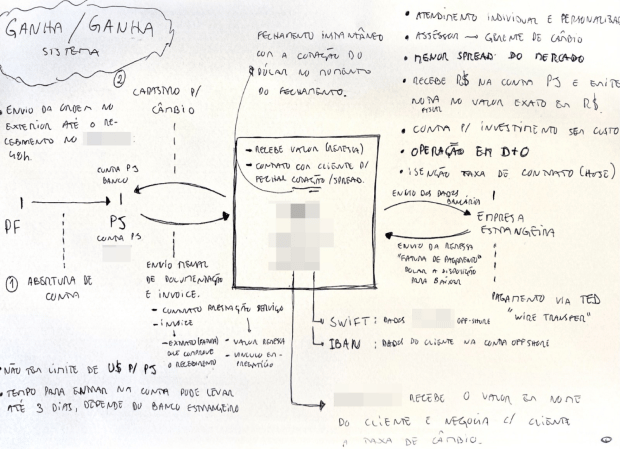 GANHA / GANHA
SISTEMA
②
CADASTRO P/
CÂMBIO
• ENVIO DA ORDEM NO
EXTERIOR ATÉ O RE-
CEBIMENTO NO
48h.
FECHAMENTO INSTANTÂNEO
COM A COTAÇÃO DO
DÓLAR NO MOMENTO
DO FECHAMENTO.
• ATENDIMENTO INDIVIDUAL E PERSONALIZAD
• ASSESSOR → GERENTE DE CÂMBIO
• MENOR SPREAD DO MERCADO
• RECEBE R$ NA CONTA PJ E EMITE
NOTA FISCAL NO VALOR EXATO EM R$.
• CONTA P/ INVESTIMENTO SEM CUSTO
• OPERAÇÃO EM D+0
• ISENÇÃO TAXA DE CONTRATO (HOJE)
→ RECEBE VALOR (REMESSA)
→ CONTATO COM CLIENTE P/
FECHAR COTAÇÃO / SPREAD.
CONTA PJ
BANCO
PF
PJ
CONTA PJ
① ABERTURA DE
CONTA
ENVIO MENSAL
DE DOCUMENTAÇÃO
E INVOICE.
- CONTRATO PRESTAÇÃO SERVIÇO
- INVOICE
- EXTRATO
QUE COMPROVE
O RECEBIMENTO
- VALOR REMESSA
- VÍNCULO EM-
PREGATÍCIO
ENVIO DOS DADOS
BANCÁRIOS
EMPRESA
ESTRANGEIRA
ENVIO DA REMESSA
"FATURA DE PAGAMENTO"
DOLAR A DISPOSIÇÃO
PARA BAIXAR
PAGAMENTO VIA TED
"WIRE TRANSFER"
SWIFT: DADOS OFF-SHORE
IBAN: DADOS DO CLIENTE NA CONTA OFFSHORE
• NÃO TEM LIMITE DE U$ P/ PJ
• TEMPO PARA ENTRAR NA CONTA PODE LEVAR
ATÉ 3 DIAS, DEPENDE DO BANCO ESTRANGEIRO
RECEBE O VALOR EM NOME
DO CLIENTE E NEGOCIA C/ CLIENTE
A TAXA DE CÂMBIO.